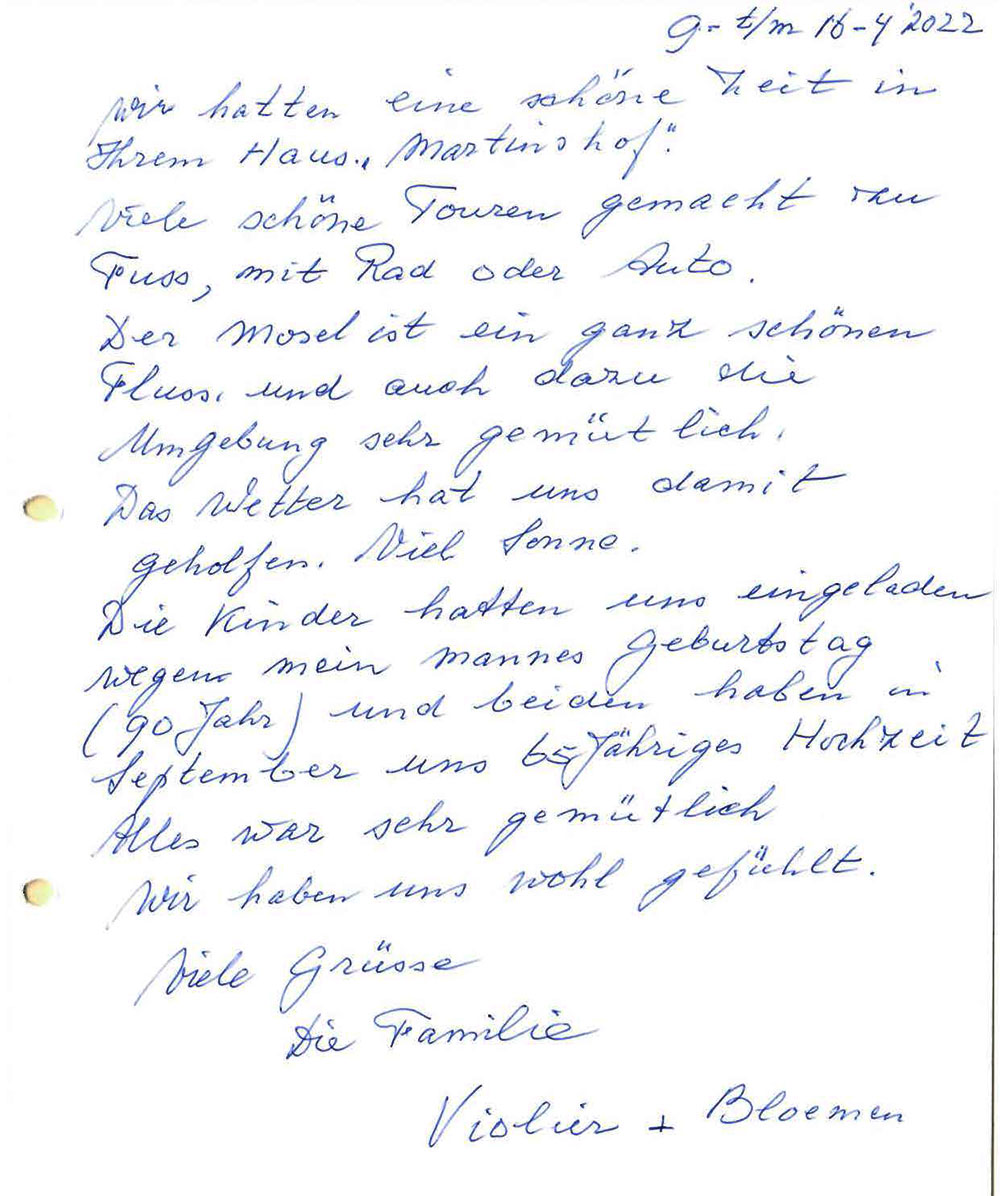 9- t/m 16-4 2022
Wir hatten eine schöne Zeit in
Ihrem Haus „Martinshof“.
Viele schöne Touren gemacht zu
Fuss, mit Rad oder Auto.
Der Mosel ist ein ganz schönen
Fluss. und auch dazu die
Umgebung sehr gemütlich.
Das Wetter hat uns damit
geholfen. Viel Sonne.
Die Kinder hatten uns eingeladen
wegen mein mannes Geburtstag
(90 Jahr) und beiden haben in
September uns 65 Jähriges Hochzeit
Alles war sehr gemütlich
Wir haben uns wohl gefühlt.
Viele Grüsse
Die Familie
Violier + Bloemen